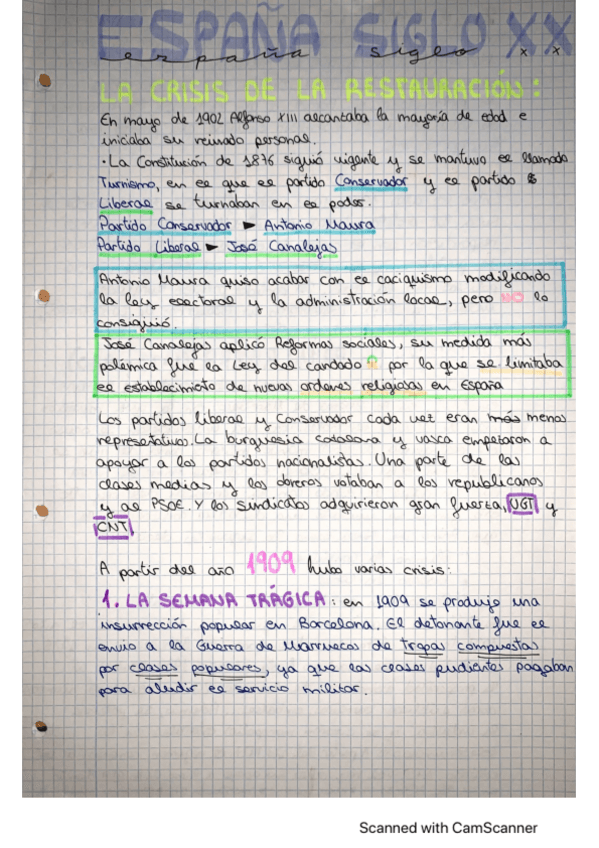 ESPAÑA SIGLO XX
españa siglo x x
LA CRISIS DE LA RESTAURACIÓN:
En mayo de 1902 Alfonso XIII alcantaba la mayoría de edad e
iniciaba su reinado personal.
· La Constitución de 1876 siguió vigente y se mantuvo el llamado
Turnismo, en el que el partido Conservador y el partido
Liberal se turnaban en el poder.
Partido Conservador ► Antonio Maura
Partido Liberal ► José Canalejas
Antonio Maura quiso acabar con el caciquismo modificando
la ley electoral y la administración local, pero NO lo
consiguió.
José Canalejas aplicó Reformas sociales, su medida más
polémica fue la Ley del candado por la que se limitaba
el establecimiento de nuevas ordenes religiosas en España
Los partidos liberal y Conservador cada vez eran más menos
representativos. La burguesia catalana y vasca empezaron a
apoyar a los partidos nacionalistas. Una parte de las
clases medias y los obreros votaban a los republicanos
y al PSOE. Y los sindicatos adquirieron gran fuerza, UGT y
CNT
A partir del año 1909 hubo varias crisis:
1. LA SEMANA TRÁGICA: en 1909 se produjo una
insurrección popular en Barcelona. El detonante fue el
envio a la Guerra de Marruecos de tropas compuestas
por clases populares, ya que las clases pudientes pagaban
para aludir el servicio militar.
Scanned with CamScanner